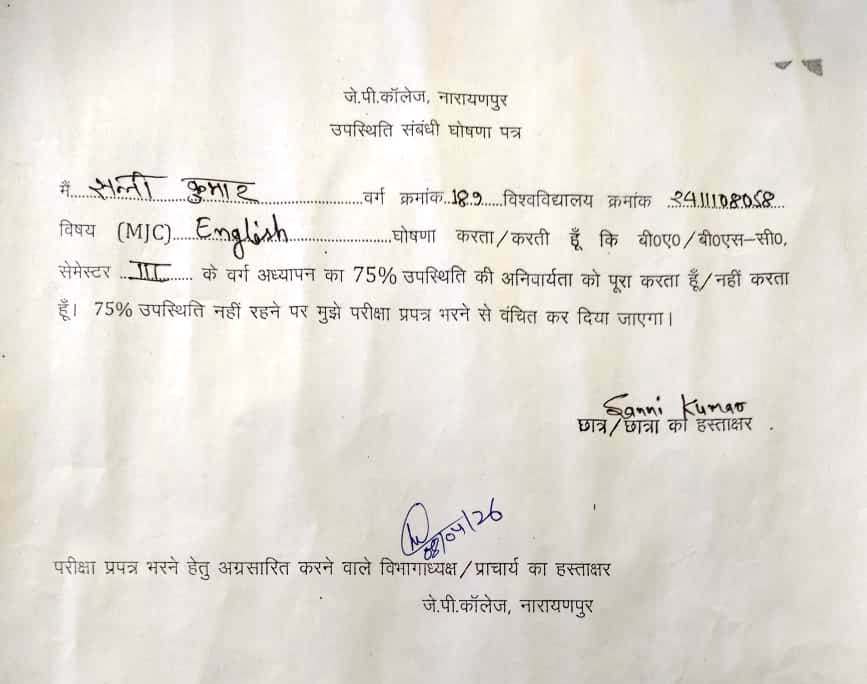 जे.पी.कॉलेज, नारायणपुर
उपस्थिति संबंधी घोषणा पत्र
मैं सन्नी कुमार वर्ग क्रमांक 189 विश्वविद्यालय क्रमांक 2411108058
विषय (MJC) English घोषणा करता/करती हूँ कि बी०ए०/बी०एस–सी०,
सेमेस्टर III के वर्ग अध्यापन का 75% उपस्थिति की अनिपार्यता को पूरा करता हूँ/नहीं करता
हूँ। 75% उपस्थिति नहीं रहने पर मुझे परीक्षा प्रपत्र भरने से वंचित कर दिया जाएगा।
Sanni Kumar
छात्र/छात्रा का हस्ताक्षर
08/04/26
परीक्षा प्रपत्र भरने हेतु अग्रसारित करने वाले विभागाध्यक्ष/प्राचार्य का हस्ताक्षर
जे.पी.कॉलेज, नारायणपुर